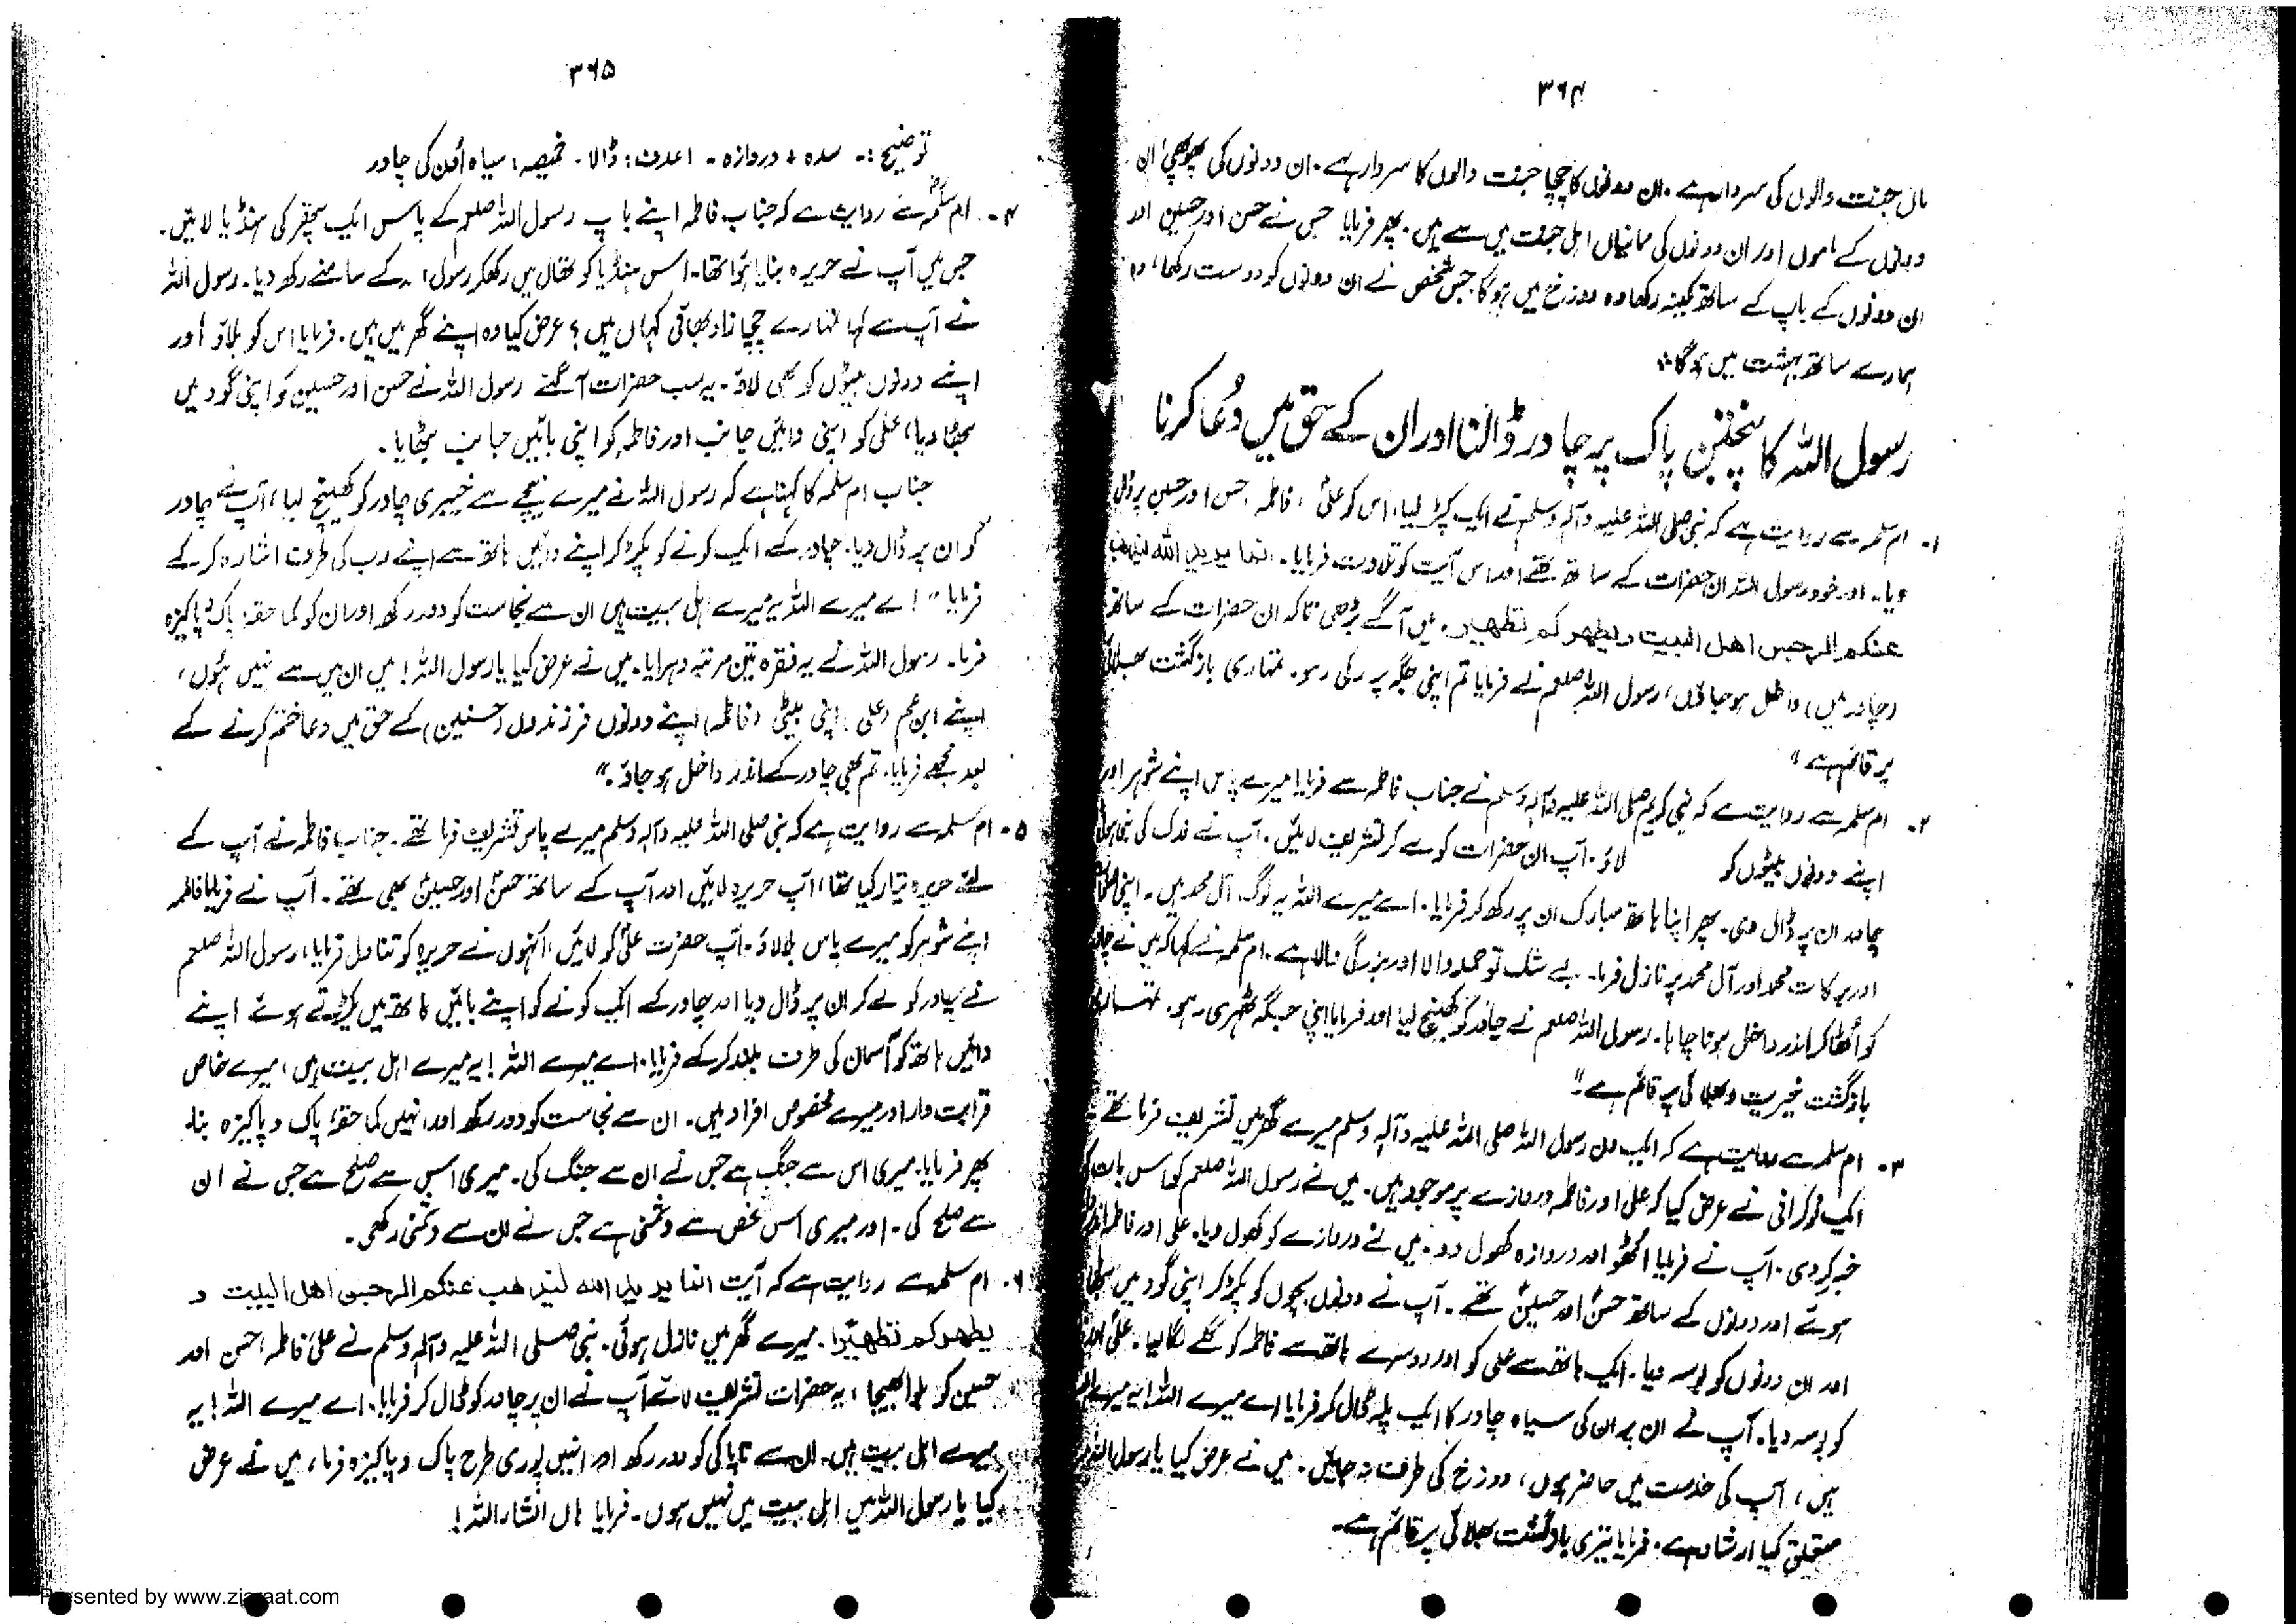 ۳۶۴
ماں جنت والوں کی سردار ہے ۔ ان دونوں کا چچا جنت والوں کا سردار ہے ۔ ان دونوں کی پھوپھی ان
دونوں کے ماموں اور ان دونوں کی ممانیاں اہل جنت میں سے ہیں ۔ پھر فرمایا جس نے حسن اور حسین اور
ان دونوں کے باپ کے ساتھ کینہ رکھا وہ دوزخ میں ہو گا جس شخص نے ان دونوں کو دوست رکھا، وہ
ہمارے ساتھ بہشت میں ہو گا
رسول اللہ کا پنجتن پاک پر چادر ڈالنا اور ان کے حق میں دُعا کرنا
۱۔ ام سلمہ سے روایت ہے کہ نبی صلی اللہ علیہ وآلہ وسلم نے ایک کپڑا لیا، اس کو علیؑ ، فاطمہ حسن اور حسین پر ڈال
دیا۔ اور خود رسول اللہ ان حضرات کے ساتھ تھے اور اس آیت کو تلاوت فرمایا ۔ انما یرید اللہ لیذھب
عنکم الرجس اھل البیت ویطھر کم تطھیر۔ میں آگے بڑھی تاکہ ان حضرات کے ساتھ
(چادر میں) داخل ہو جاؤں، رسول اللہ صلعم نے فرمایا تم اپنی جگہ پر رکی رہو۔ تمہاری بازگشت بھلائی
پر قائم ہے "
۲۔ ام سلمہ سے روایت ہے کہ نبی کریم صلی اللہ علیہ وآلہ وسلم نے جناب فاطمہ سے فرمایا میرے پاس اپنے شوہر اور
اپنے دونوں بیٹوں کو لاؤ ۔ آپ ان حضرات کو لے کر تشریف لائیں ۔ آپ نے فدک کی بنی ہوئی
چادر ان پر ڈال دی۔ پھر اپنا ہاتھ مبارک ان پر رکھ کر فرمایا ۔ اے میرے اللہ یہ لوگ آل محمد ہیں ۔ اپنی
اور برکات محمد اور آل محمد پر نازل فرما۔ بے شک تو حمد والا اور بزرگی والا ہے ۔ ام سلمہ نے کہا کہ میں نے چادر
کو اُٹھا کر اندر داخل ہونا چاہا ۔ رسول اللہ صلعم نے چادر کو کھینچ لیا اور فرمایا اپنی جگہ ٹھہری رہو۔ تمہاری
بازگشت خیریت و بھلائی پر قائم ہے "
۳۔ ام سلمہ سے روایت ہے کہ ایک دن رسول اللہ صلی اللہ علیہ وآلہ وسلم میرے گھر میں تشریف فرما تھے
ایک نوکرانی نے عرض کیا کہ علی اور فاطمہ دروازے پر موجود ہیں۔ میں نے رسول اللہ صلعم کو اس بات کی
خبر کر دی ۔ آپ نے فرمایا اٹھو اور دروازہ کھول دو ۔ میں نے دروازے کو کھول دیا۔ علی اور فاطمہ
ہوئے اور دونوں کے ساتھ حسنؑ اور حسینؑ تھے ۔ آپ نے دونوں بچوں کو پکڑ کر اپنی گود میں بٹھا
اور ان دونوں کو بوسہ دیا ۔ ایک ہاتھ سے علی کو اور دوسرے ہاتھ سے فاطمہ کو گلے لگا لیا ۔ علی اور
کو بوسہ دیا۔ آپ نے ان پر ان کی سیاہ چادر کا ایک پلہ ڈال کر فرمایا اے میرے اللہ! یہ میرے
ہیں، آپ کی خدمت میں حاضر ہوں، دوزخ کی طرف نہ جائیں ۔ میں نے عرض کیا یا رسول اللہ
متعلق کیا ارشاد ہے ۔ فرمایا تیری بازگشت بھلائی پر قائم ہے۔
۳۶۵
توضیح :۔ سدہ : دروازہ ۔ اغدف : ڈالا ۔ خمیصہ : سیاہ اُون کی چادر
۴۔ ام سلمہؓ سے روایت ہے کہ جناب فاطمہ اپنے باپ رسول اللہ صلعم کے پاس ایک پتھر کی ہنڈیا لائیں۔
جس میں آپ نے حریرہ بنایا ہوا تھا۔ اس ہنڈیا کو تھال میں رکھ کر رسول اللہ کے سامنے رکھ دیا۔ رسول اللہ
نے آپ سے کہا تمہارے چچا زاد بھائی کہاں ہیں؟ عرض کیا وہ اپنے گھر میں ہیں ۔ فرمایا اس کو بلاؤ اور
اپنے دونوں بیٹوں کو بھی لاؤ ۔ یہ سب حضرات آ گئے رسول اللہ نے حسن اور حسین کو اپنی گود میں
بٹھا دیا، علی کو اپنی دائیں جانب اور فاطمہ کو اپنی بائیں جانب بٹھایا ۔
جناب ام سلمہ کا کہنا ہے کہ رسول اللہ نے میرے نیچے سے خیبری چادر کو کھینچ لیا، آپ نے چادر
کو ان پر ڈال دیا۔ چادر کے ایک کونے کو پکڑ کر اپنے دائیں ہاتھ سے اپنے رب کی طرف اشارہ کر کے
فرمایا " اے میرے اللہ یہ میرے اہل بیت ہیں ان سے نجاست کو دور رکھ اور ان کو کما حقہ پاک و پاکیزہ
فرما۔ رسول اللہ نے یہ فقرہ تین مرتبہ دہرایا ۔ میں نے عرض کیا یا رسول اللہ! میں ان میں سے نہیں ہوں،
اپنے ابن عم (علی) اپنی بیٹی (فاطمہ) اپنے دونوں فرزندوں (حسنین) کے حق میں دعا ختم کرنے کے
بعد مجھے فرمایا۔ تم بھی چادر کے اندر داخل ہو جاؤ ۔"
۵۔ ام سلمہ سے روایت ہے کہ نبی صلی اللہ علیہ وآلہ وسلم میرے پاس تشریف فرما تھے ۔ جناب فاطمہ نے آپ کے
لئے حریرہ تیار کیا تھا، آپ حریرہ لائیں اور آپ کے ساتھ حسنؑ اور حسینؑ بھی تھے ۔ آپ نے فرمایا فاطمہ
اپنے شوہر کو میرے پاس بلا لاؤ ۔ آپ حضرت علیؑ کو لائیں، انہوں نے حریرہ کو تناول فرمایا، رسول اللہ صلعم
نے چادر کو لے کر ان پر ڈال دیا اور چادر کے ایک کونے کو اپنے بائیں ہاتھ میں پکڑتے ہوئے اپنے
دائیں ہاتھ کو آسمان کی طرف بلند کر کے فرمایا۔ اے میرے اللہ! یہ میرے اہل بیت ہیں، میرے خاص
قرابت دار اور میرے مخصوص افراد ہیں۔ ان سے نجاست کو دور رکھ اور انہیں کما حقہٗ پاک و پاکیزہ بنا۔
پھر فرمایا۔ میری اس سے جنگ ہے جس نے ان سے جنگ کی۔ میری اس سے صلح ہے جس نے ان
سے صلح کی ۔ اور میری اس شخص سے دشمنی ہے جس نے ان سے دشمنی رکھی ۔
۶۔ ام سلمہ سے روایت ہے کہ آیت انما یرید اللہ لیذھب عنکم الرجس اھل البیت و
یطھرکم تطھیرا ۔ میرے گھر میں نازل ہوئی۔ نبی صلی اللہ علیہ وآلہ وسلم نے علی، فاطمہ، حسن اور
حسین کو بلوا بھیجا، یہ حضرات تشریف لائے آپ نے ان پر چادر کو ڈال کر فرمایا۔ اے میرے اللہ! یہ
میرے اہل بیت ہیں۔ ان سے ناپاکی کو دور رکھ اور انہیں پوری طرح پاک و پاکیزہ فرما، میں نے عرض
کیا یا رسول اللہ میں اہل بیت میں نہیں ہوں ۔ فرمایا ہاں انشاء اللہ!
Presented by www.ziaraat.com